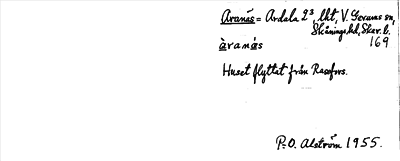 Aranäs = Ardala 2³, lht, V. Gerums sn,
Skånings hd, Skar. l.
àranás 169
Huset flyttat från Rasefors.
P.O. Alström 1955.